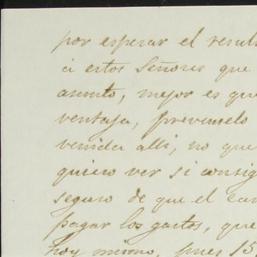 por esperar el resul
á estos Señores que
asunto, mejor es que
ventaja, prevenselo
venida alli, no que
quiero ver si consig
seguro de que el cam
pagar los gastos, que
hoy mismo, pues 15,